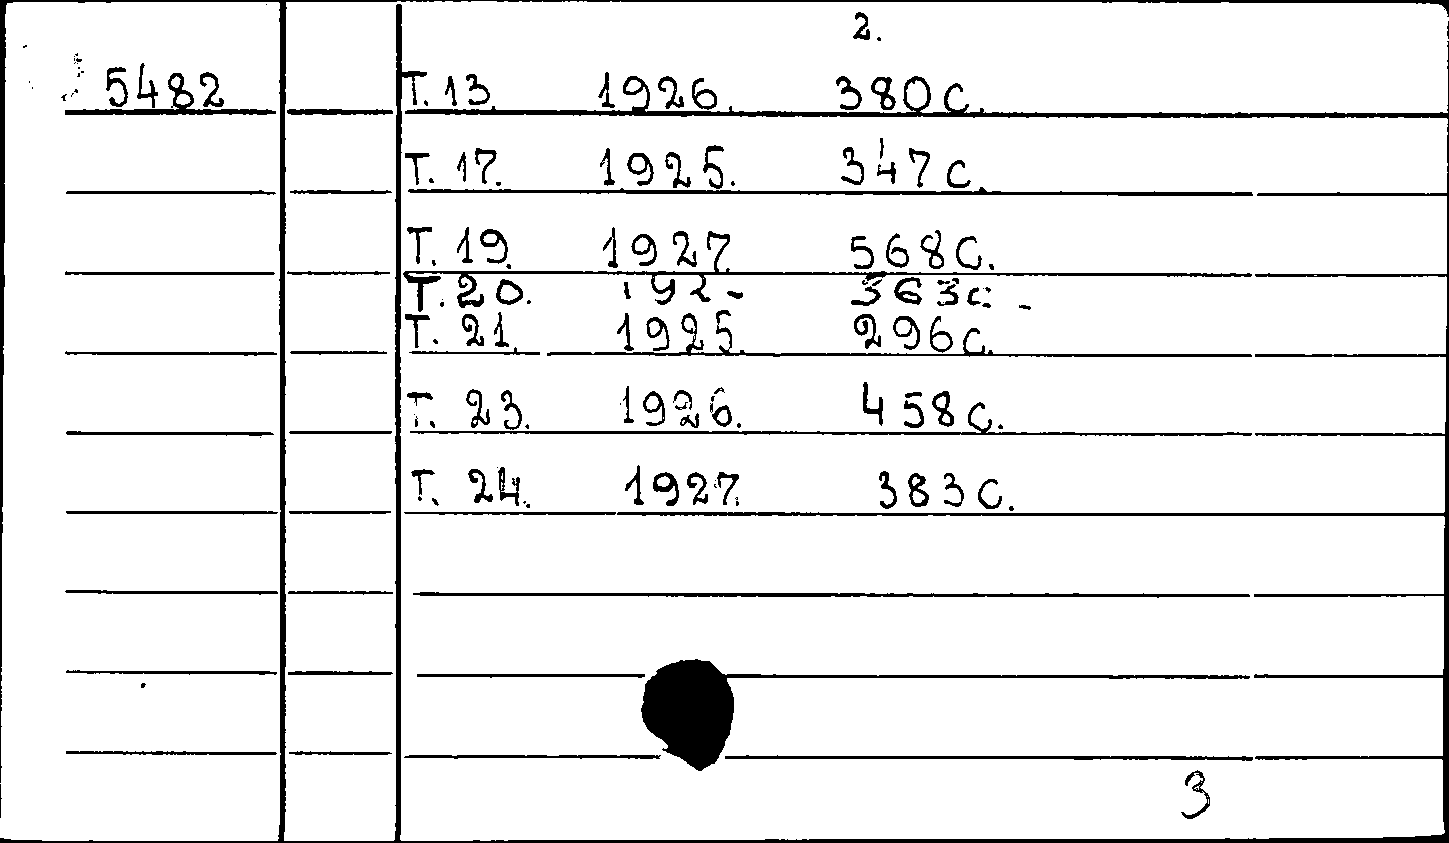 2.
5482 Т. 13. 1926. 380 с.
Т. 17. 1925. 347 с.
Т. 19. 1927. 568 с.
Т. 20. 363 с.
Т. 21. 1925. 296 с.
Т. 23. 1926. 458 с.
Т. 24. 1927. 383 с.
3